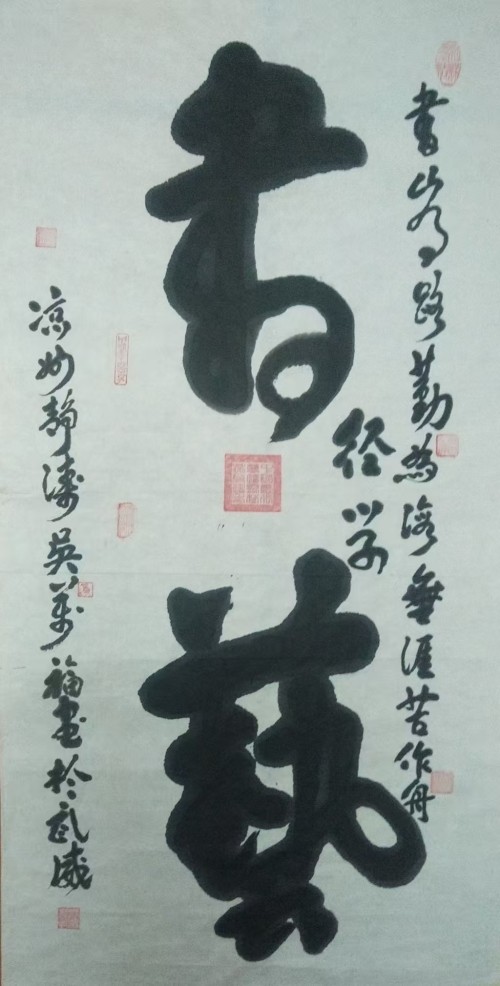 書山有路勤為海無涯苦作舟
徑學
書藝
凉州靜濤吳萬福書於武威